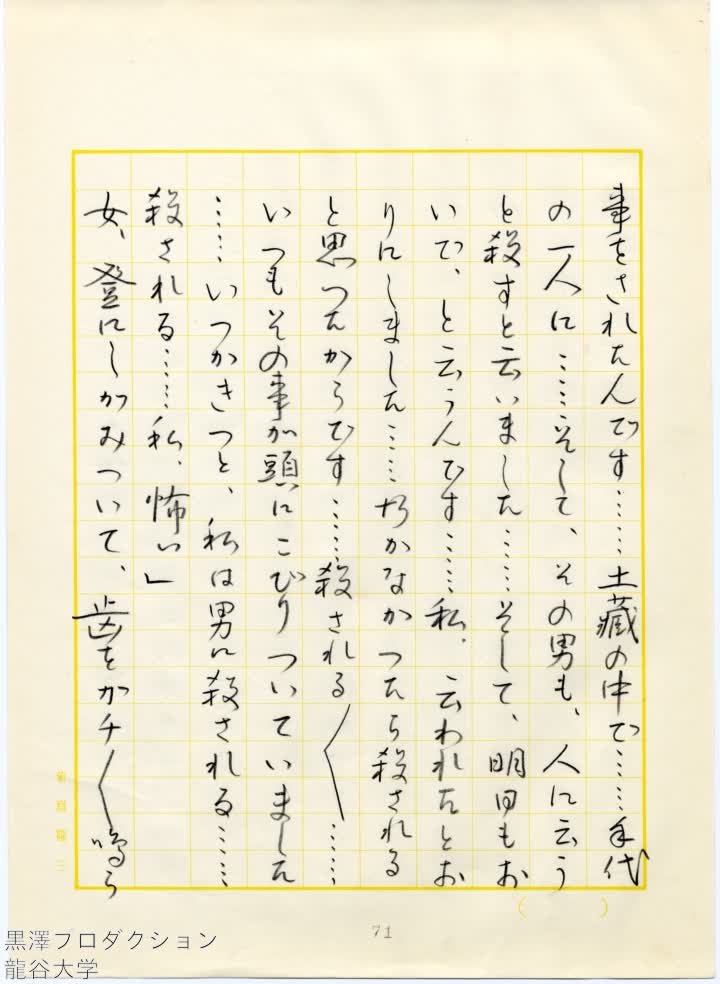 事をされたんです……土蔵の中で……手代
の一人に……そして、その男も、人に云う
と殺すと云いました……そして、明日もお
いで、と云うんです……私、云われたとお
りにしました……行かなかつたら殺される
と思つたからです……殺される〳〵……
いつもその事が頭にこびりついていました
……いつかきつと、私は男に殺される……
殺される……私、怖い」
女、登にしがみついて、歯をカチ〳〵鳴ら
71
黒澤プロダクション
龍谷大学